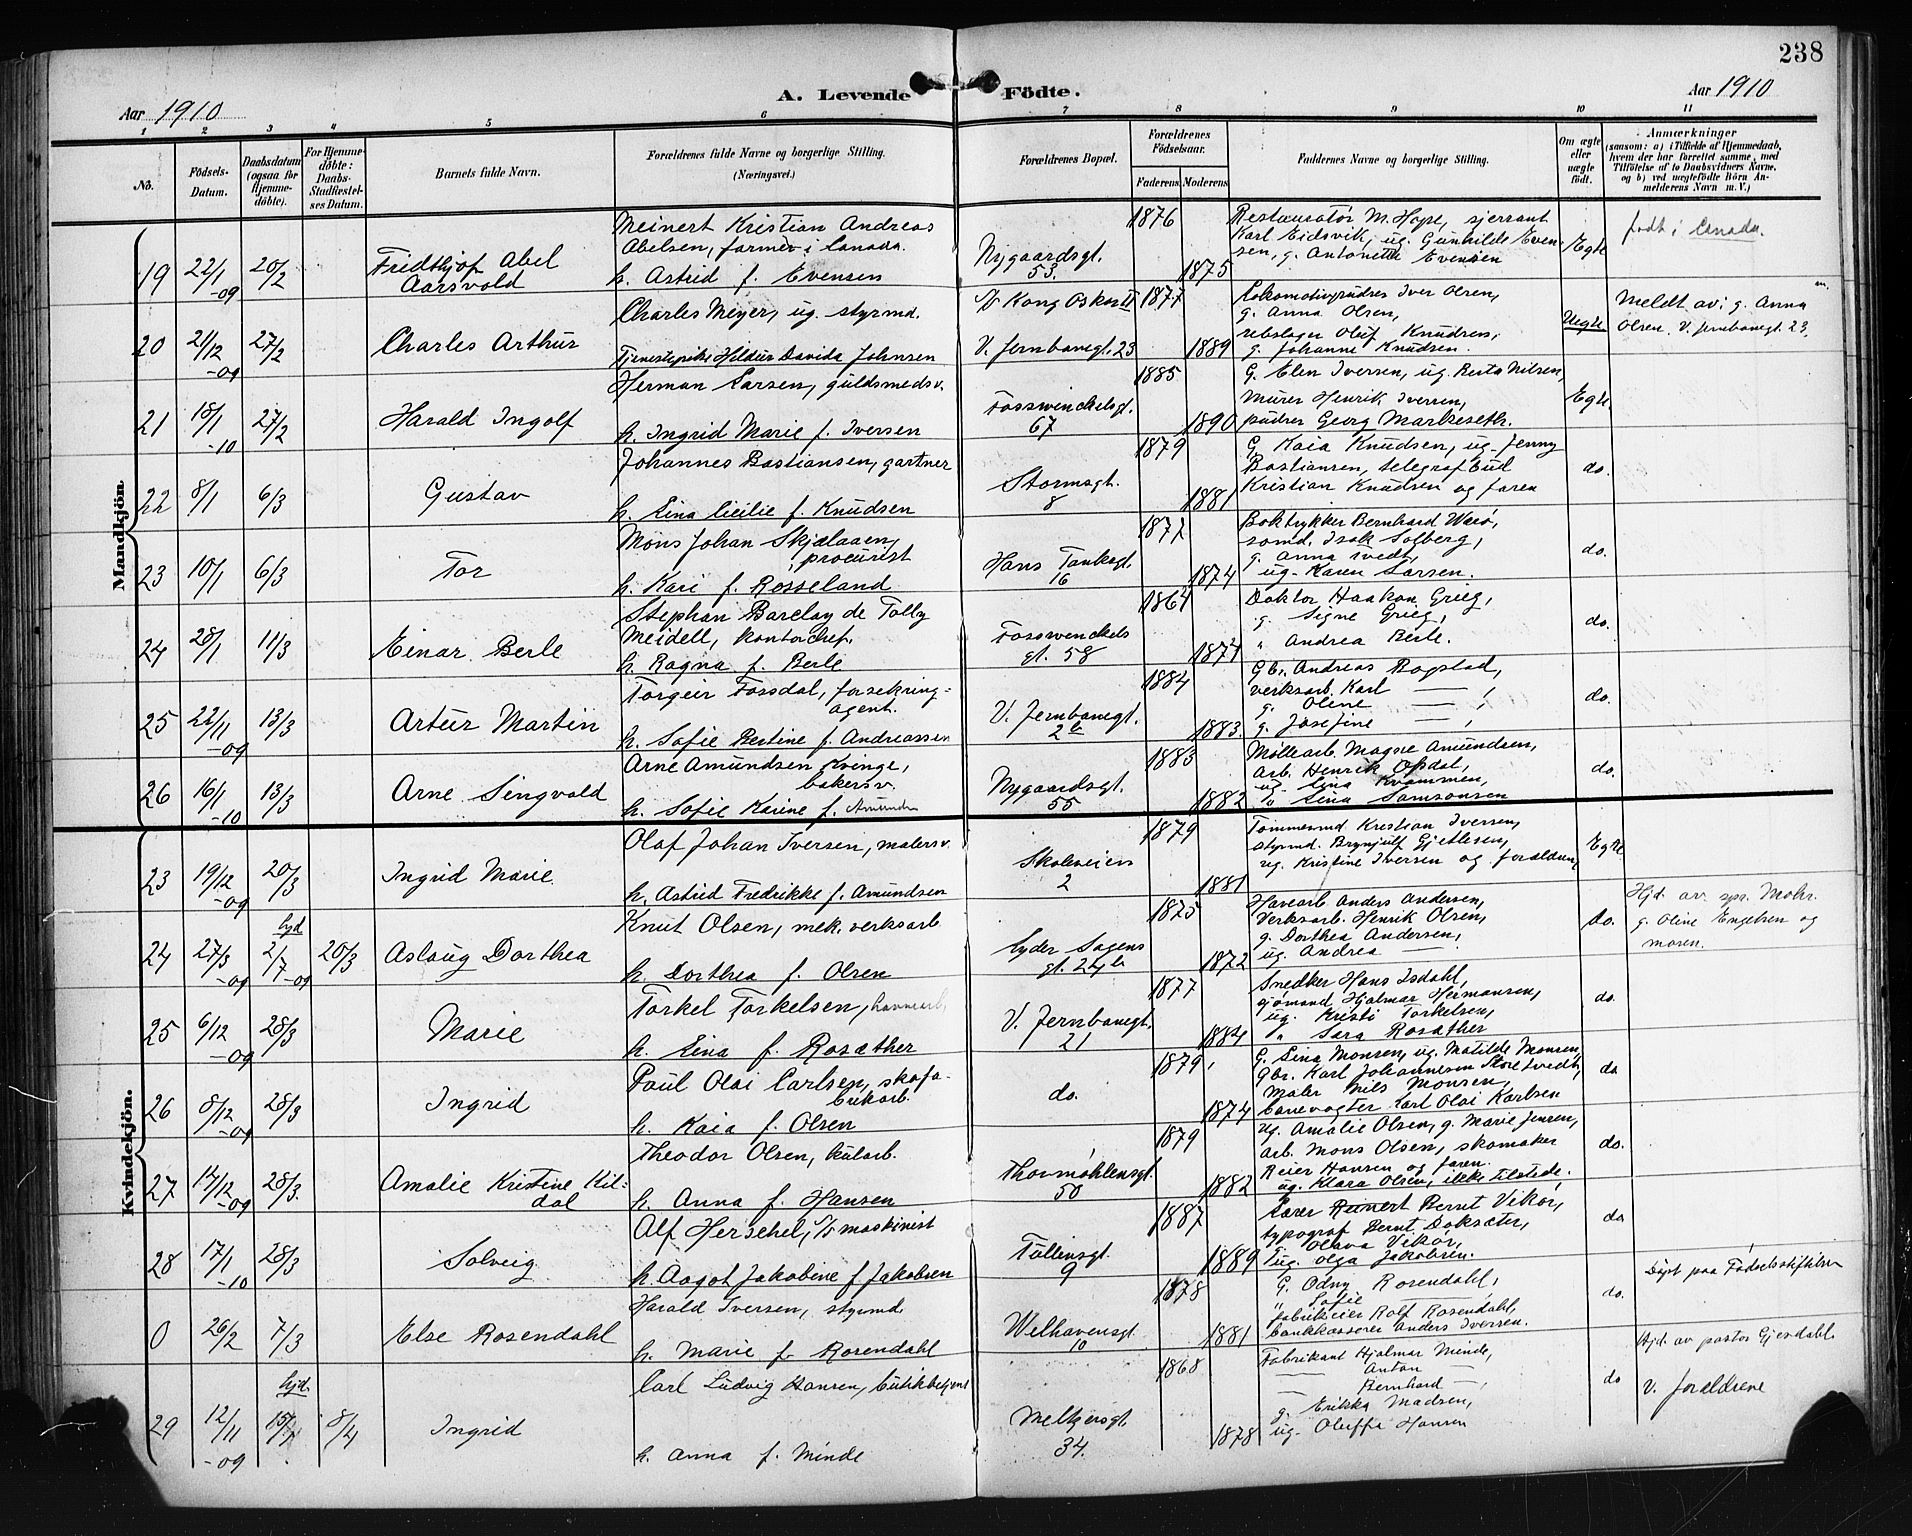 238
A. Levende Födte.
Aar 1910
Aar 1910
1 2 3 4 5 6 7 8 9 10 11
No.
Födsels-Datum.
Daabsdatum (ogsaa for Hjemme-döbte).
For Hjemme-döbte: Daabs-Stadfæstel-ses Datum.
Barnets fulde Navn.
Forældrenes fulde Navne og borgerlige Stilling.
(Næringsvei.)
Forældrenes Bopæl.
Forældrenes Födselsaar.
Faderens Moderens
Faddernes Navne og borgerlige Stilling.
Om ægte eller uægte födt.
Anmærkninger
(saasom: a) i Tilfælde af Hjemmedaab, hvem der har forrettet samme, med Tilföielse af to Daabsvidners Navne, og b) ved uægtefödte Börn An-melderens Navn m. V.)
Mandkjön
19 22/1 -09 20/2 Fridthjof Abel Aarsvold
Meinert Kristian Andreas
Abelsen, farmer i Canada.
h. Astrid f. Evensen
Nygaardsgt. 53. 1876 1875
Restauratør M. Hope, sjersant
Karl Eidsvik, ug. Gunhilde Even-
sen, g. Antonette Evensen
Egte
født i Canada.
20 21/12 -09 27/2 Charles Arthur
Charles Meyer, ug. styrmd.
Tjenestepike Hildur Davida Johnsen
S/S Kong Oskar II
V. Jernbanegt. 23 1877 1889
Lokomotivpudser Iver Olsen,
g. Anna Olsen,
rebslager Oluf Knudsen,
g. Johanne Knudsen.
Uegte
Meldt av: g. Anna
Olsen. V. Jernbanegt. 23.
21 18/1 -10 27/2 Harald Ingolf
Herman Larsen, guldsmedsv.
h. Ingrid Marie f. Iversen
Fosswinckelsgt. 67 1885 1890
G. Elen Iversen, ug. Berta Nilsen,
murer Henrik Iversen,
pudser Georg Markeseth.
Egte.
22 8/1 6/3 Gustav
Johannes Bastiansen, gartner
h. Lina Cicilie f. Knudsen
Stormsgt. 8 1879 1881
G. Kaia Knudsen, ug. Jenny
Bastiansen, telegrafbud
Kristian Knudsen og faren
do.
23 10/1 6/3 Tor
Mons Johan Skjælaaen,
procurist
h. Kari f. Rosseland
Hans Tanksgt. 16 1872 1874
Boktrykker Bernhard Werø,
sømd. Isak Solberg,
g. Anna Tvedt,
ug. Karen Larsen.
do.
24 28/1 11/3 Einar Berle
Stephan Barclay de Tolly
Meidell, kontorchef,
h. Ragna f. Berle
Fosswinckels
gt. 58 1864 1871
Doktor Haakon Grieg,
g. Signe Grieg,
" Andrea Berle.
do.
25 22/11 -09 13/3 Artur Martin
Torgeir Fossdal, forsekring-
agent.
h. Sofie Bertine f. Andreassen
V. Jernbanegt. 2b 1884 1883
Gbr. Andreas Bogstad,
verksarb. Karl — ,
g. Oline —
g. Josefine — ,
do.
26 16/1 -10 13/3 Arne Singvald
Arne Amundsen Kvinge,
bakersv.
h. Sofie Karine f. Amundsen
Nygaardsgt. 55 1883 1882
Møllearb. Magne Amundsen,
arb. Henrik Opdal,
ug. Lina Kvammen,
" Lina Samsonsen
do.
Kvindekjön.
23 19/12 -09 20/3 Ingrid Marie.
Olaf Johan Iversen, malersv.
h. Astrid Fredrikke f. Amundsen
Skoleveien 2 1879 1881
Tømmermd Kristian Iversen,
styrmd. Brynjulf Gjetlesen,
ug. Kristine Iversen og forældren
Egte.
24 27/3 -09 hjd 2/7 -09 20/3 Aslaug Dorthea
Knut Olsen, mek. verksarb.
h. Dorthea f. Olsen
Lyder Sagens
gt. 24b 1875 1872
Havearb Anders Andersen,
Verksarb. Henrik Olsen,
g. Dorthea Andersen,
ug. Andrea —
do.
Hjd. av spr. Mohr.
g. Oline Engelsen og
moren.
25 6/12 -09 28/3 Marie
Torkel Torkelsen, havnearb.
h. Lina f. Rosæther
V. Jernbanegt. 21 1877 1884
Snedker Hans Isdahl,
sjømand Hjalmar Hermansen,
ug. Kristi Torkelsen,
" Sara Rosæther
do.
26 8/12 -09 28/3 Ingrid
Paul Olai Carlsen, skofa-
brikarb.
h. Kaia f. Olsen
do. 1879 1874
G. Lina Monsen, ug. Matilde Monsen,
Gbr. Karl Johannesen Storetvedt,
Maler Nils Monsen,
banevogter Karl Olai Karlsen
do
27 17/12 -09 28/3 Amalie Kristine Kil-
dal
Theodor Olsen, kularb.
h. Anna f. Hansen
Thormøhlensgt. 50 1879 1882
Ug. Amalie Olsen, g. Marie Jensen,
arb. Mons Olsen, skomaker
Reier Hansen og faren.
ug. Klara Olsen, ikke tilstede.
do.
28 17/1 -10 28/3 Solveig
Alf Herschel, S/S maskinist
h. Aagot Jakobine f. Jakobsen
Tullinsgt. 9 1887 1889
Lærer Reinert Bernt Vikør,
typograf Bernt Doksæter,
Olava Vikør,
ug. Olga Jakobsen.
do
0 26/2 7/3 Else Rosendahl
Harald Iversen, styrmd.
h. Marie f. Rosendahl
Welhavensgt. 10 1878 1881
G. Odny Rosendahl,
" Sofie —
fabrikeier Rolf Rosendahl,
bankkasserer Anders Iversen.
do.
Døpt paa Fødselsstiftelsen
29 12/11 -09 hjd. 15/1 8/4 Ingrid
Carl Ludvig Hansen, butikbetjent
h. Anna f. Minde
Meltzersgt. 34. 1868 1878
Fabrikant Hjalmar Minde,
— Anton —
— Bernhard — ,
g. Erikka Madsen,
ug. Oluffa Hansen
do
Hjd. av pastor Gjesdahl.
V. forældrene